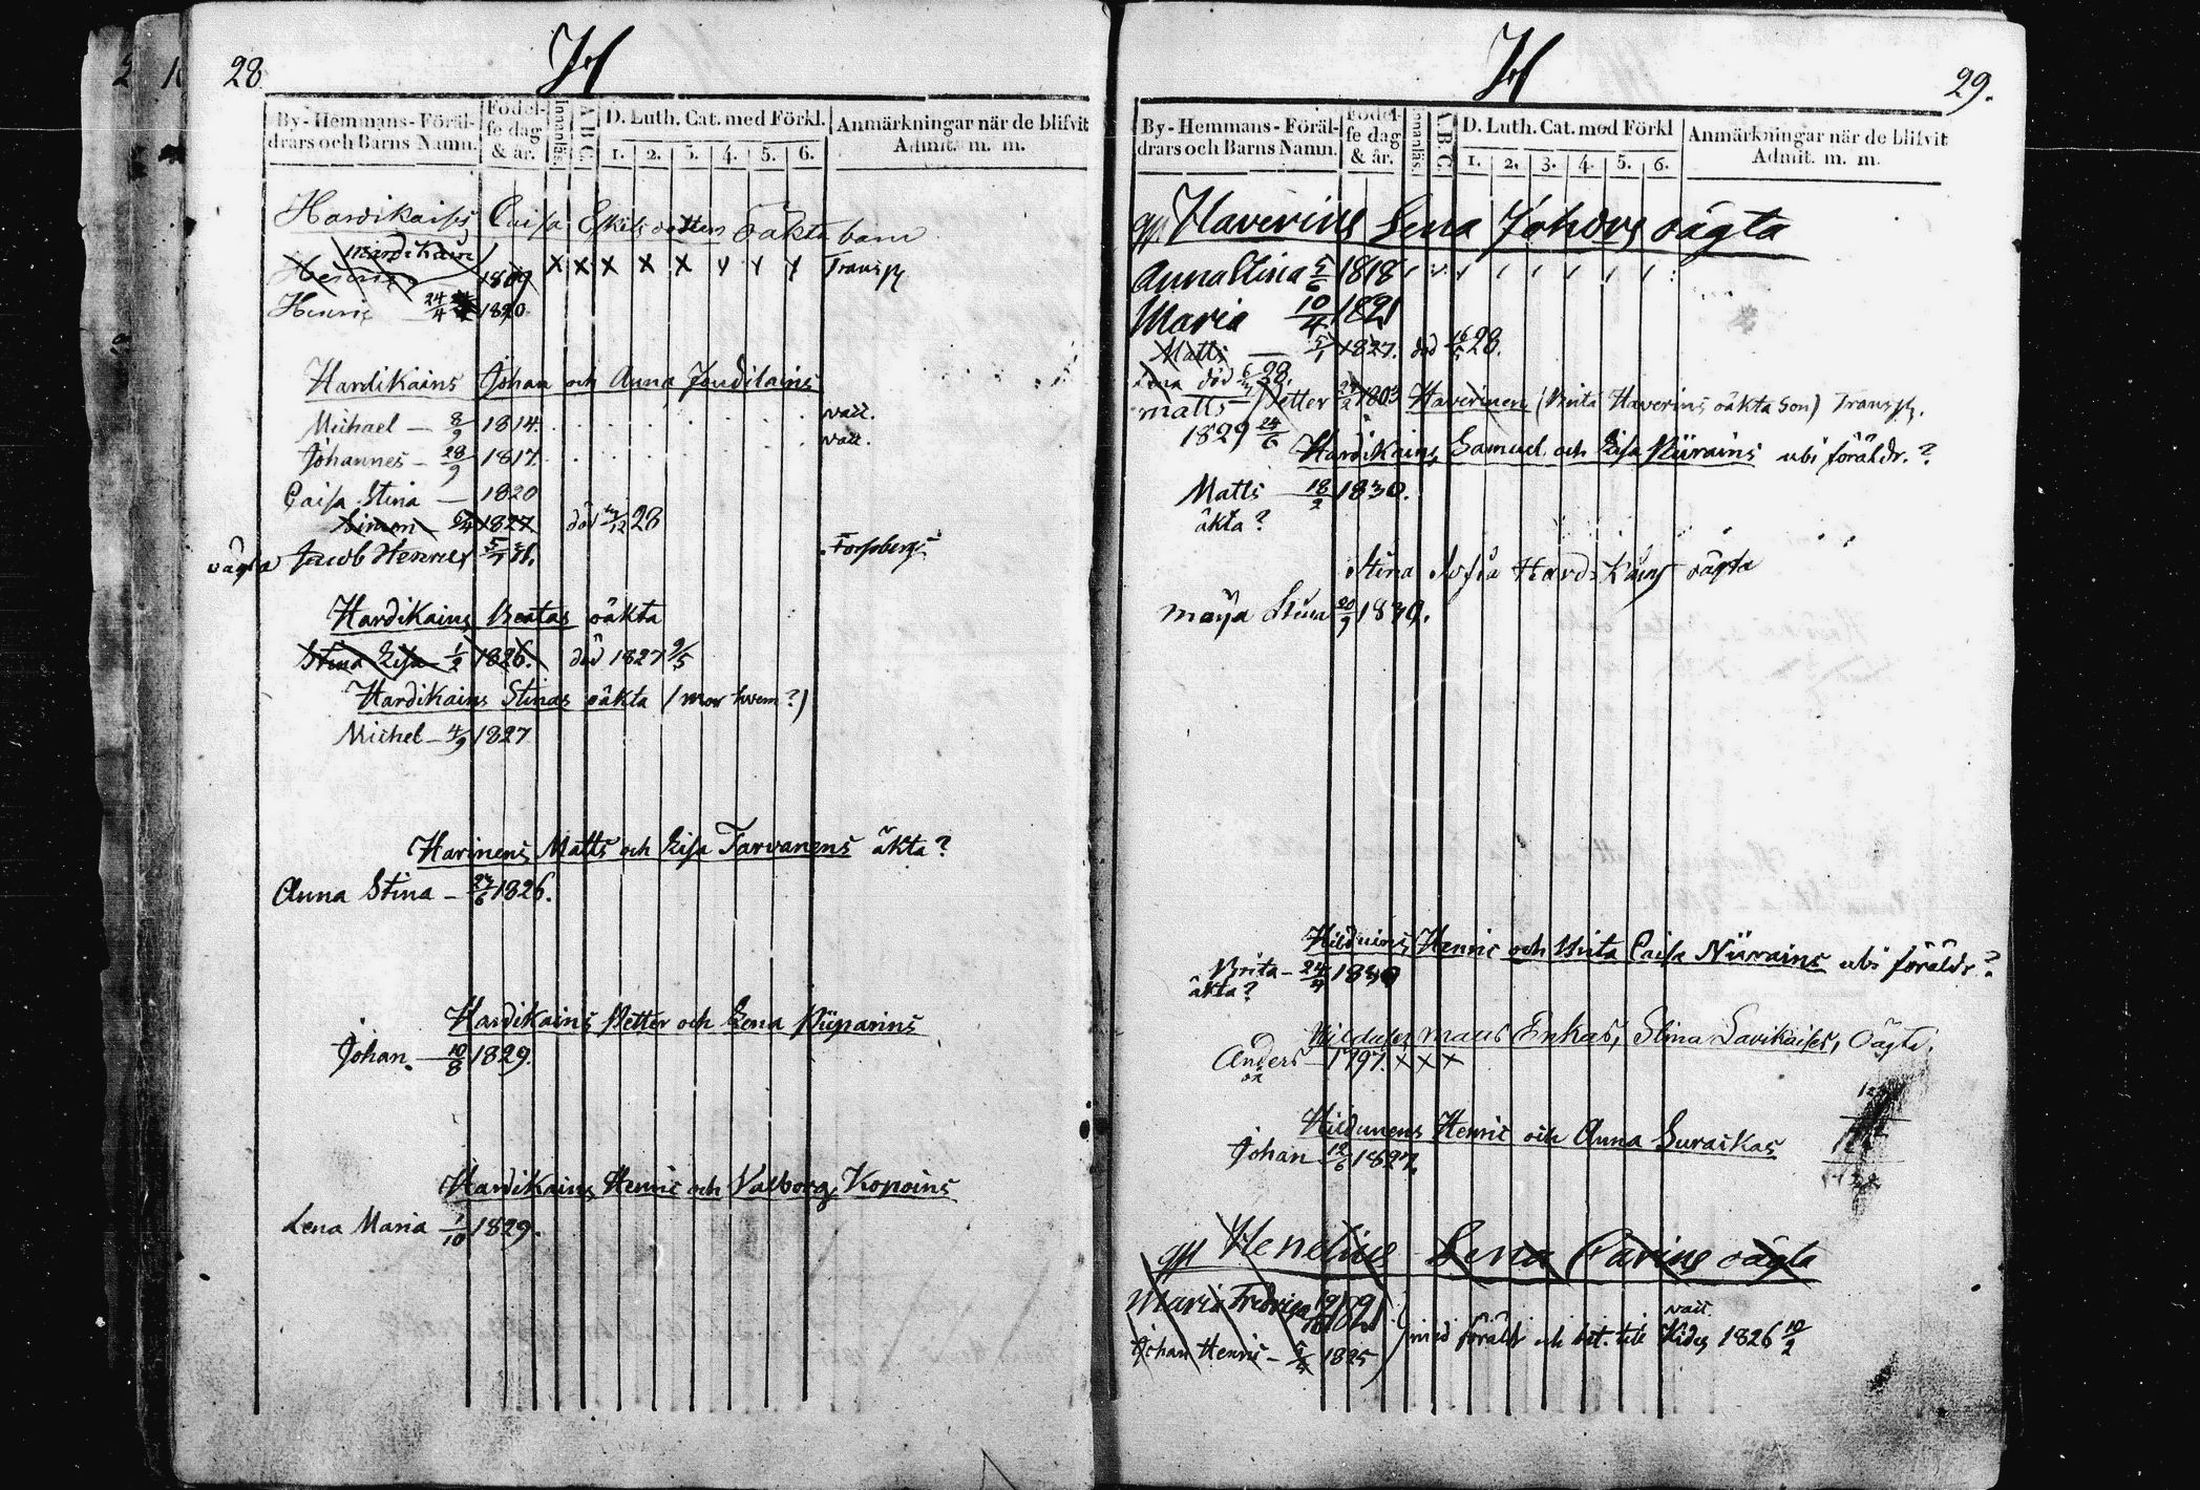 28
H
By-Hemmans-Föräl-
drars och Barns Namn.
Födel-
se dag
& år.
Innanläs.
A B C.
D. Luth. Cat. med Förkl.
1. 2. 3. 4. 5. 6.
Anmärkningar när de blifvit
Admit. m. m.
Caisa Eskilsdotters oäkta barn
Hardikain
Henric 1809 x x x x x Transp.
Henric 24/4 1820
Hardikains Johan och Anna Joudilains
Michael — 8/9 1814. vacc.
Johannes — 28/9 1817. vacc.
Caisa Stina — 1820
Simon 1827 död 28
oägta Jacob Henric
Hardikains Beatas oäkta
Stina Lisa 1/2 1826. död 1827 9/5
Hardikains Stinas oäkta (mor hvem?)
Michel — 4/9 1827
Harinens Matts och Lisa Tarvanens äkta?
Anna Stina — 27/6 1826.
Hardikains Petter och Lena Piiparins
Johan — 10/8 1829.
Hardikains Henric och Valborg Kopoins
Lena Maria 1/10 1829.
H
29.
By-Hemmans-Föräl-
drars och Barns Namn.
Födel-
se dag
& år.
Innanläs.
A B C.
D. Luth. Cat. med Förkl
1. 2. 3. 4. 5. 6.
Anmärkningar när de blifvit
Admit. m. m.
Haverins Lena Johdrs oägta
Anna Stina 5/6 1818
Maria 10/4 1821
Matti — 5/1 1827. död 28.
Lena död 28.
Petter 1803 Haverinen (Brita Haverins oäkta Son) Transp.
Matts
1829 24/6
Hardikains Samuel och Lisa Piirains ubi föräldr.?
Matts 18/2 1830.
äkta?
Stina Sofia Hardikains oägta
Maija Stina 20/9 1830.
Hilduins Henric och Brita Caisa Niirains ubi föräldr.?
Brita — 24/9 1830
äkta?
Matts Enkas, Stina Lavikaises, Oägta,
Anders 1797. x x x
oä
Hildunens Henric och Anna Suraikas
Johan 12/6 1827.
Henelius Lena Carins oägta
Maria Fredrica
vacc.
Johan Henric — 1825 med föräld och bet. till Kides 1826 10/2